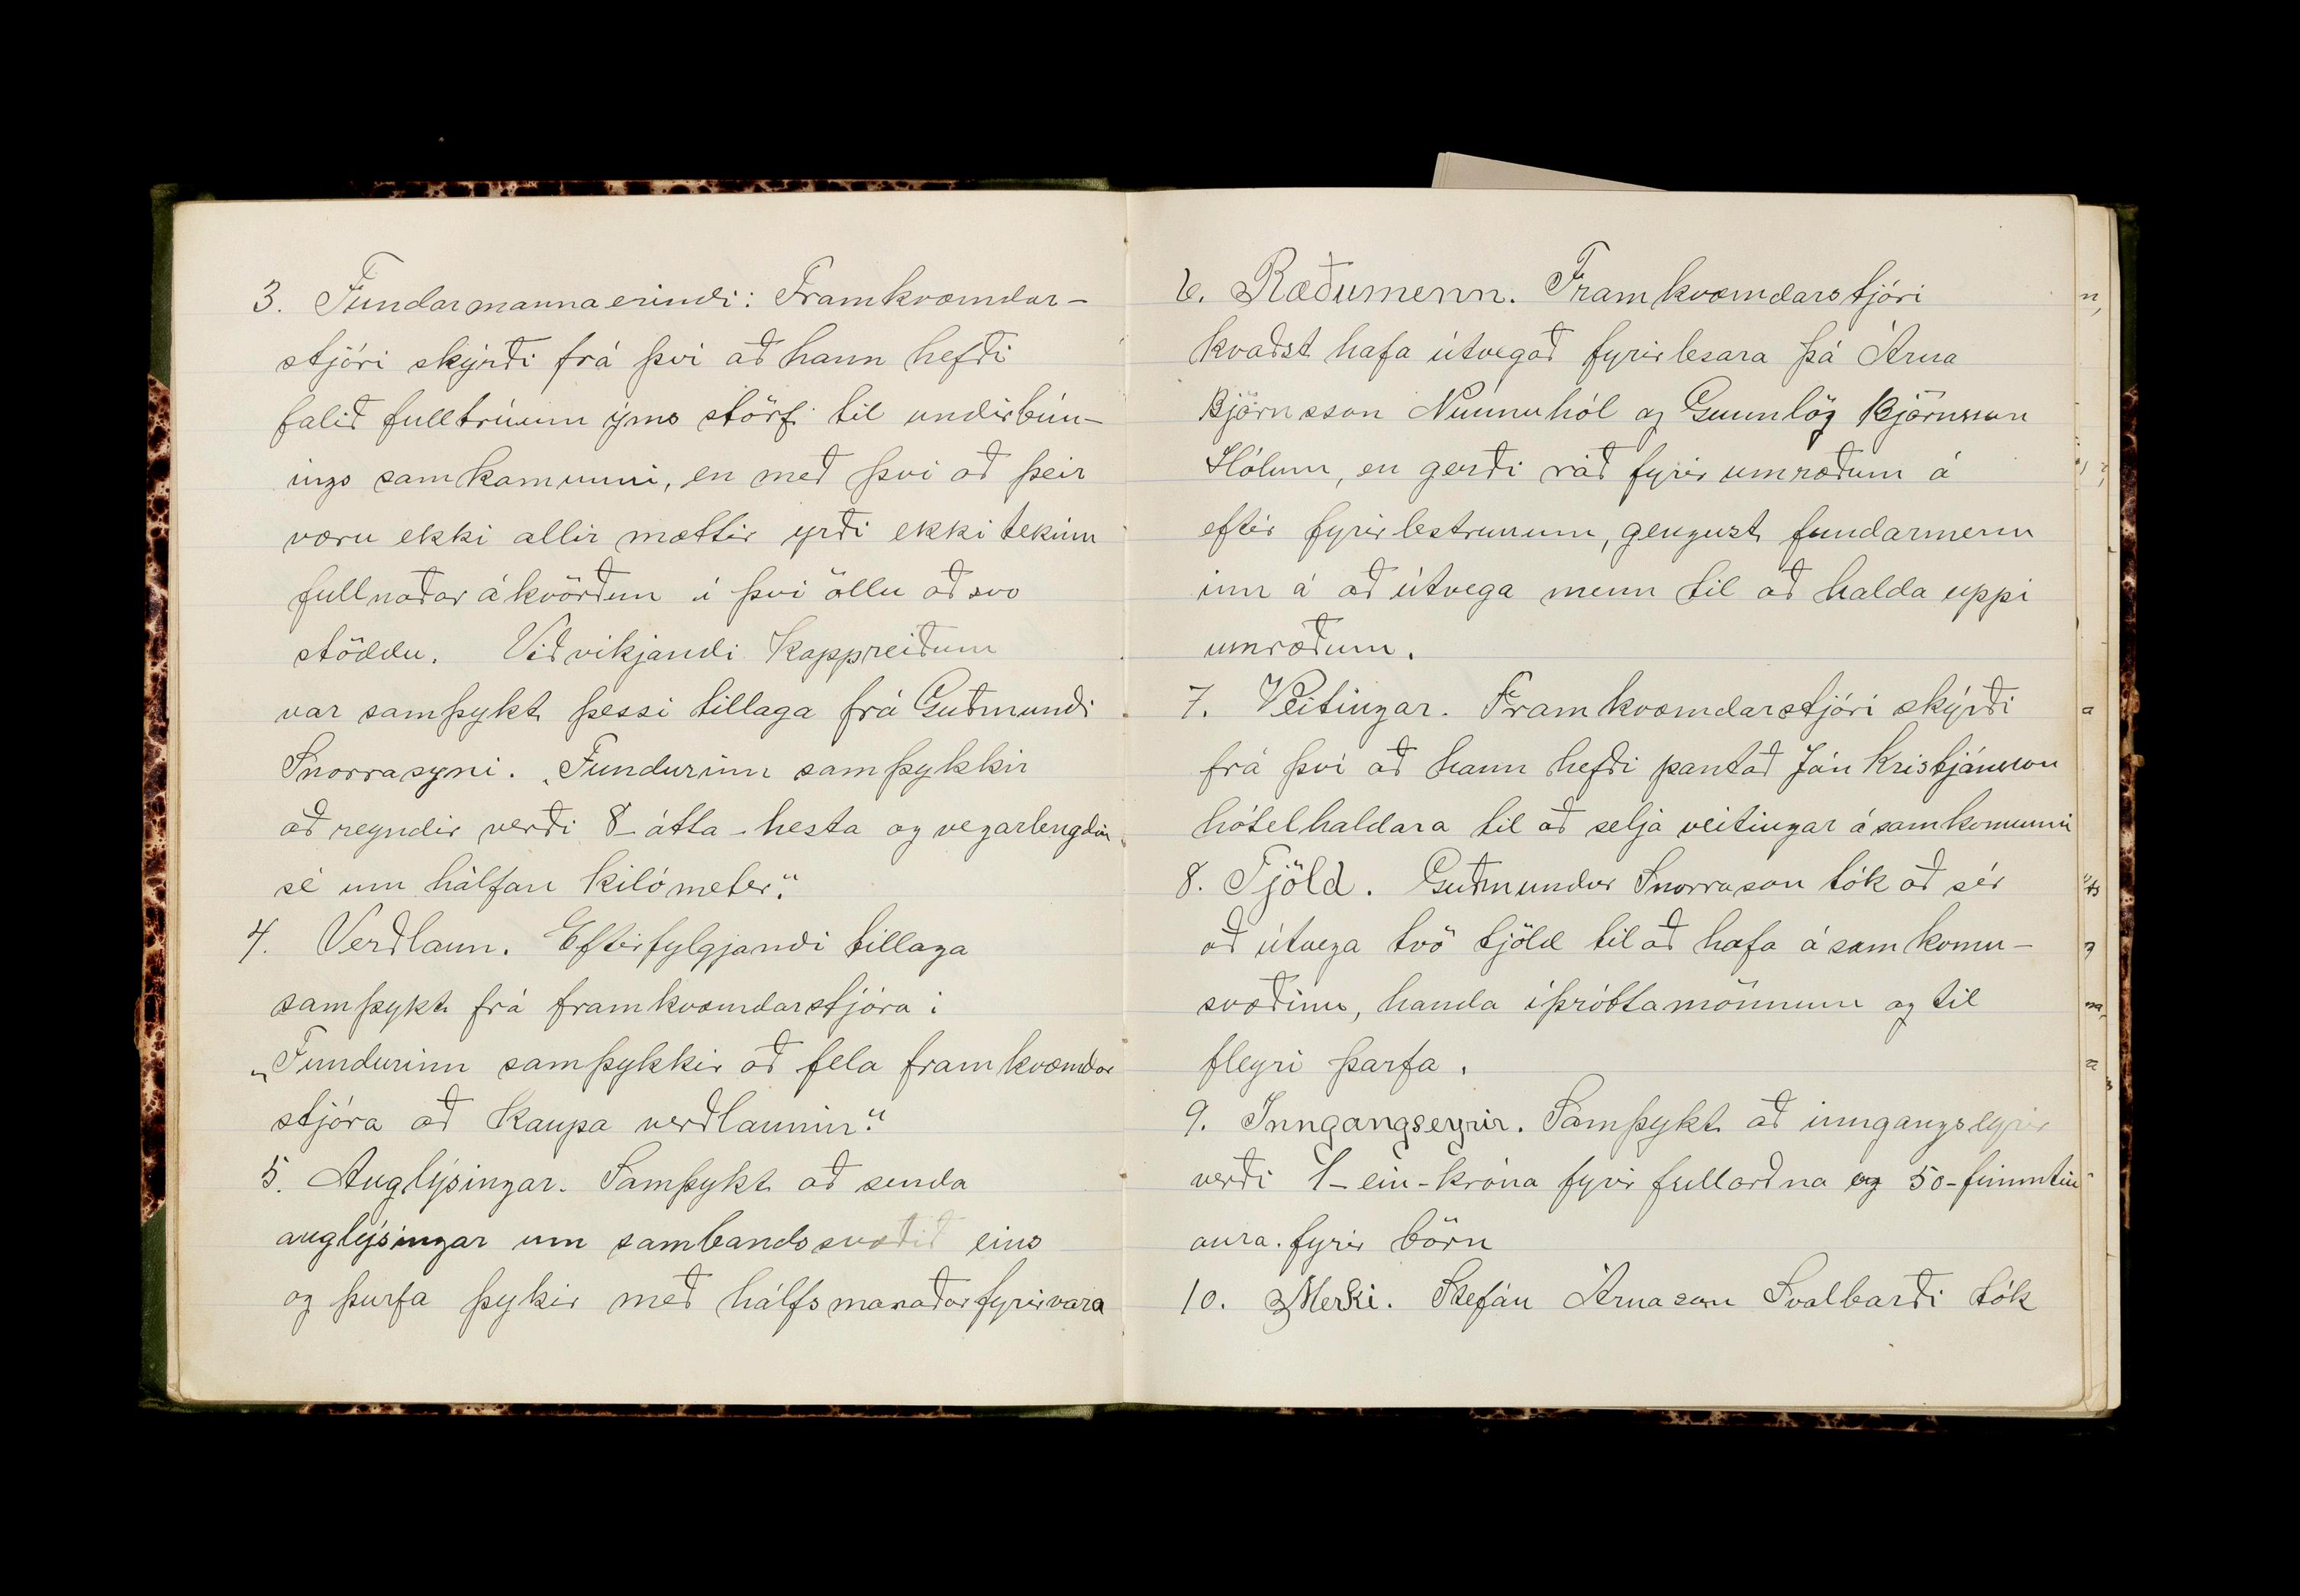 3. Fundarmannaerindi: Framkvæmdar-
stjóri skýrði frá því að hann hefði
falið fulltrúum ýms störf til undirbún-
ings samkomunni, en með því að þeir
væru ekki allir mættir yrði ekki tekin
fullnaðar ákvörðun í því öllu að svo
stöddu. Viðvikjandi Kappreiðum
var samþykt þessi tillaga frá Guðmundi
Snorrasyni. „Fundurinn samþykkir
að reyndir verði 8-átta-hesta og vegarlengdin
sé um hálfan kilómeter."
4. Verðlaun. Eftirfylgjandi tillaga
samþykt frá framkvæmdarstjóra:
„Fundurinn samþykkir að fela framkvæmdar
stjóra að kaupa verðlaunin."
5. Auglýsingar. Samþykt að senda
auglýsingar um sambandssvæðið eins
og þurfa þykir með hálfsmanaðarfyrirvara
6. Ræðumenn. Framkvæmdarstjóri
kvaðst hafa útvegað fyrirlesara þá Árna
Björnsson Núnuhól og Gunnlög Björnsson
Hólum, en gerði ráð fyrir umræðum á
eftir fyrirlestrunum, gengust fundarmenn
inn á að útvega menn til að halda uppi
umræðum.
7. Veitingar. Framkvæmdarstjóri skýrði
frá því að hann hefði pantað Ján Kristjánsson
hótelhaldara til að selja veitingar á samkomunni
8. Tjöld. Guðmundur Snorrason tók að sér
að útvega tvö tjöld til að hafa á samkomu-
svæðinu, handa íþróttamönnum og til
fleyri þarfa.
9. Inngangseyrir. Samþykt að inngangseyrir
verði 1-ein-króna fyrir fullorðna og 50-fimmtíu
aura. fyrir börn
10. Merki. Stefán Árnason Svalbarði tók